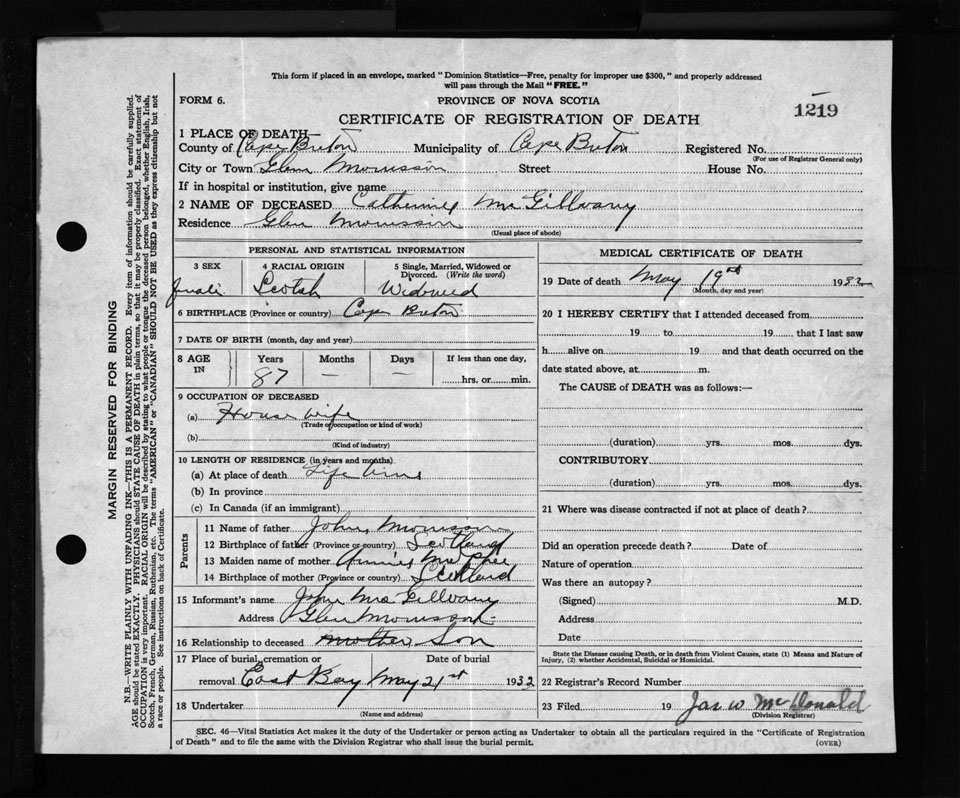 This form if placed in an envelope, marked "Dominion Statistics—Free, penalty for improper use $300," and properly addressed
will pass through the Mail "FREE."
FORM 6.
PROVINCE OF NOVA SCOTIA
1219
CERTIFICATE OF REGISTRATION OF DEATH
1 PLACE OF DEATH—
County of Cape Breton Municipality of Cape Breton Registered No.
(For use of Registrar General only)
City or Town Glen Morrison Street House No.
If in hospital or institution, give name
2 NAME OF DECEASED Catherine McGillvary
Residence Glen Morrison
(Usual place of abode)
PERSONAL AND STATISTICAL INFORMATION
3 SEX 4 RACIAL ORIGIN 5 Single, Married, Widowed or
Divorced. (Write the word)
Scotch Widowed
6 BIRTHPLACE (Province or country) Cape Breton
7 DATE OF BIRTH (month, day and year)
8 AGE IN Years Months Days If less than one day,
87 — — hrs. or min.
9 OCCUPATION OF DECEASED
(a) House wife
(Trade or occupation or kind of work)
(b)
(Kind of industry)
10 LENGTH OF RESIDENCE (in years and months)
(a) At place of death Life time
(b) In province
(c) In Canada (if an immigrant)
Parents
11 Name of father John Morrison
12 Birthplace of father (Province or country) Scotland
13 Maiden name of mother Annie McPhee
14 Birthplace of mother (Province or country) Scotland
15 Informant's name John McGillvary
Address Glen Morrison
16 Relationship to deceased mother Son
17 Place of burial, cremation or Date of burial
removal East Bay May 21st 1932
18 Undertaker
(Name and address)
MEDICAL CERTIFICATE OF DEATH
19 Date of death May 19th 1932
(Month, day and year)
20 I HEREBY CERTIFY that I attended deceased from
19 to 19 that I last saw
h alive on 19 and that death occurred on the
date stated above, at m.
The CAUSE of DEATH was as follows:—
(duration) yrs. mos. dys.
CONTRIBUTORY
(duration) yrs. mos. dys.
21 Where was disease contracted if not at place of death?
Did an operation precede death? Date of
Nature of operation
Was there an autopsy?
(Signed) M.D.
Address
Date
State the Disease causing Death, or in death from Violent Causes, state (1) Means and Nature of
Injury, (2) whether Accidental, Suicidal or Homicidal.
22 Registrar's Record Number
23 Filed 19 Jas W McDonald
(Division Registrar)
SEC. 46—Vital Statistics Act makes it the duty of the Undertaker or person acting as Undertaker to obtain all the particulars required in the "Certificate of Registration
of Death" and to file the same with the Division Registrar who shall issue the burial permit. (OVER)
MARGIN RESERVED FOR BINDING
N.B.—WRITE PLAINLY WITH UNFADING INK—THIS IS A PERMANENT RECORD. Every item of information should be carefully supplied.
AGE should be stated EXACTLY. PHYSICIANS should STATE CAUSE OF DEATH in plain terms, so that it may be properly classified. Exact statement of
OCCUPATION is very important. RACIAL ORIGIN will be described by stating to what people or tongue the deceased person belonged, whether English, Irish,
Scotch, French, German, Russian, Ruthenian, etc. The terms "AMERICAN" or "CANADIAN" SHOULD NOT BE USED as they express citizenship but not
a race or people. See instructions on back of Certificate.